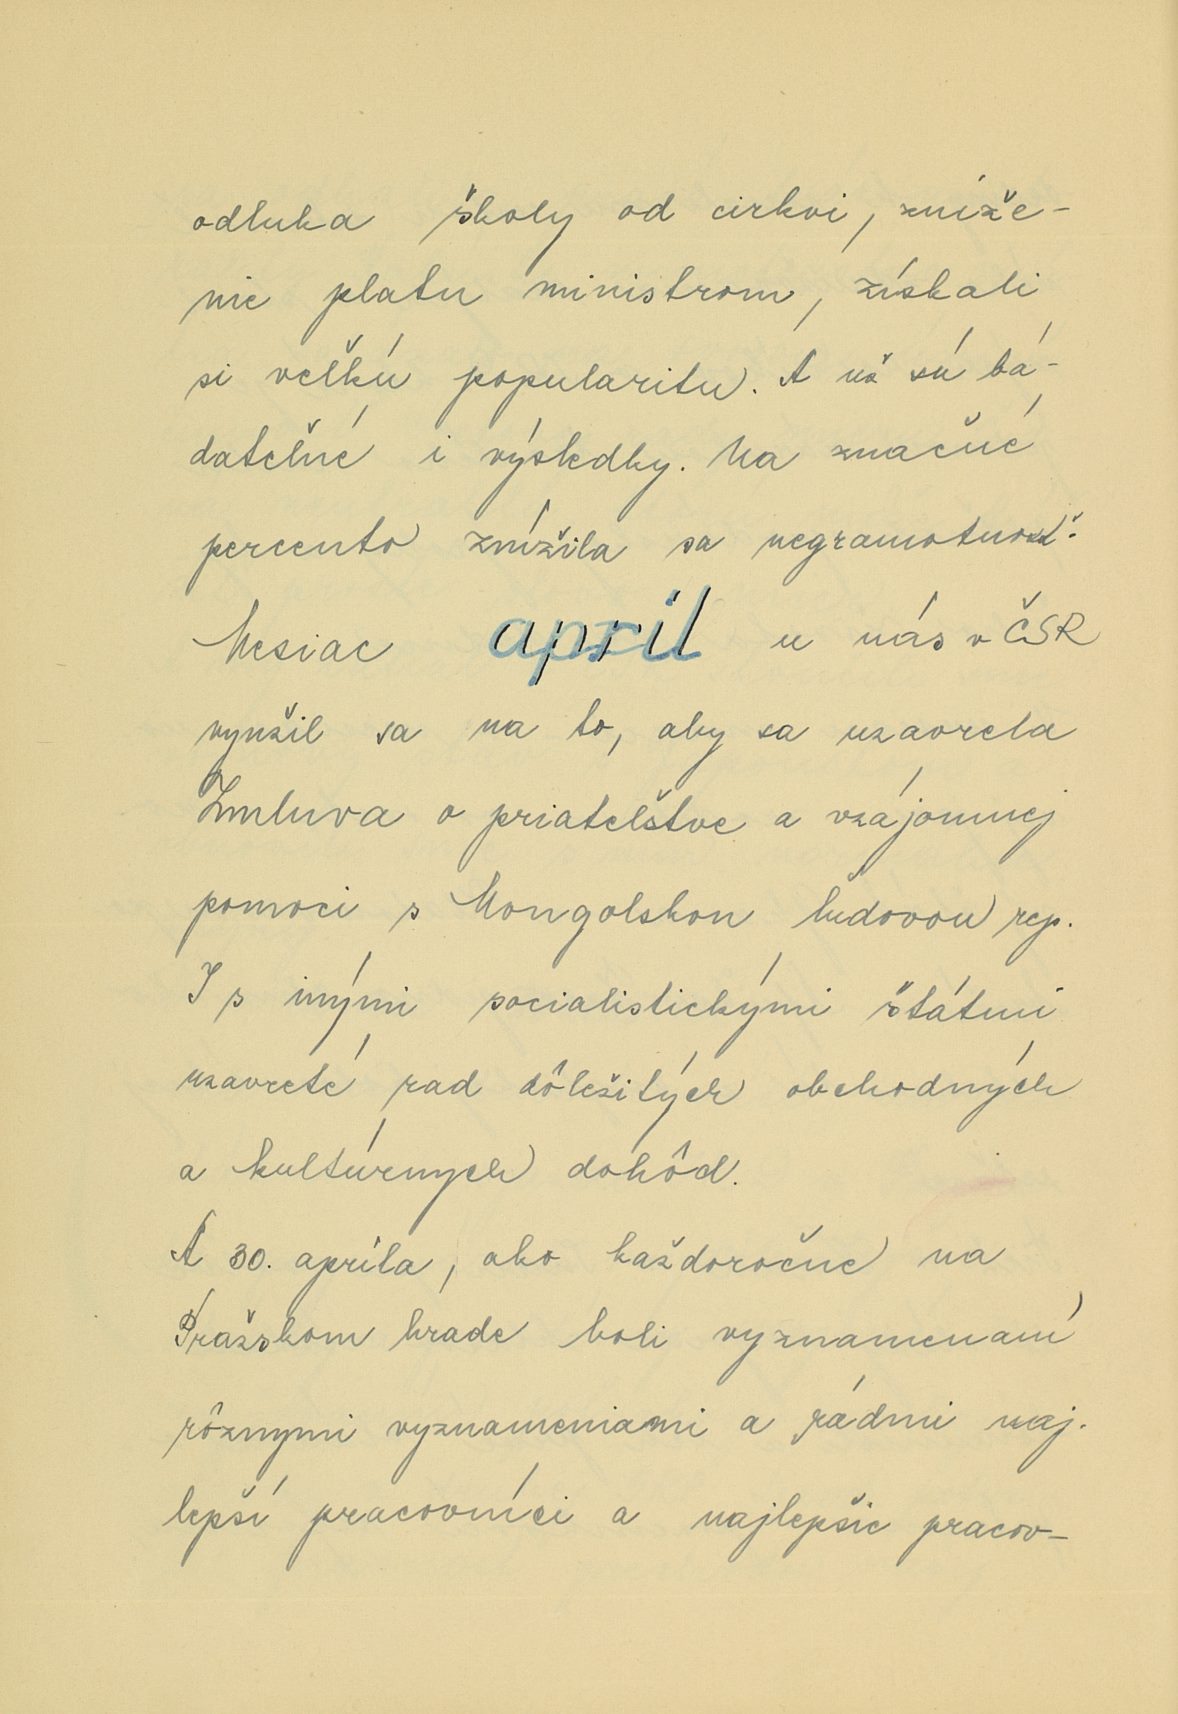 odluka školy od cirkvi, zníže-
nie platu ministrom, získali
si veľkú popularitu. A už sú bá-
dateľné i výsledky. Na značné
percento znížila sa negramotnosť.
Mesiac apríl u nás v ČSR
využil sa na to, aby sa uzavrela
Zmluva o priateľstve a vzájomnej
pomoci s Mongolskou ľudovou rep.
I s inými socialistickými štátmi
uzavreté rad dôležitých obchodných
a kultúrnych dohôd.
A 30. apríla, ako každoročne na
Pražskom hrade boli vyznamenaní
rôznymi vyznameniami a rádmi naj-
lepší pracovníci a najlepšie pracov-